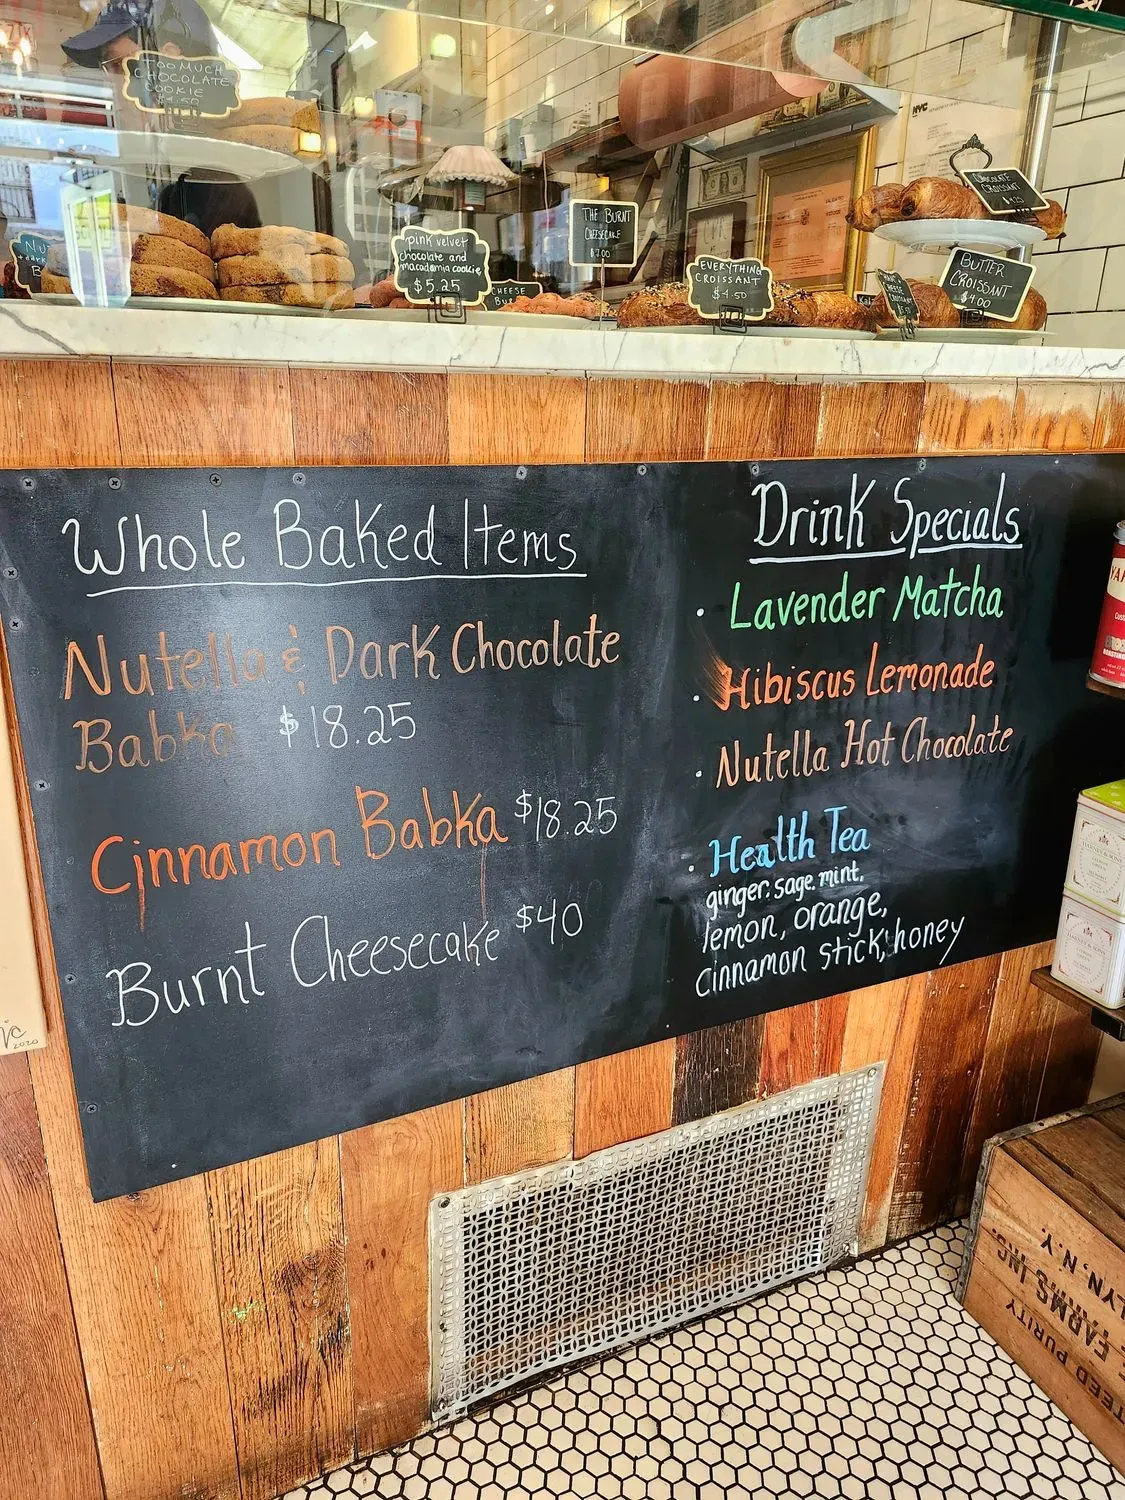 TOO MUCH
CHOCOLATE
COOKIE
$4.50
NYC
pink velvet
chocolate and
macadamia cookie
$5.25
THE BURNT
CHEESECAKE
$7.00
EVERYTHING
CROISSANT
$4.50
CHOCOLATE
CROISSANT
BUTTER
CROISSANT
$4.00
CHEESE
Whole Baked Items
Nutella & Dark Chocolate
Babka $18.25
Cinnamon Babka $18.25
Burnt Cheesecake $40
Drink Specials
• Lavender Matcha
• Hibiscus Lemonade
• Nutella Hot Chocolate
• Health Tea
ginger, sage, mint,
lemon, orange,
cinnamon stick, honey
2020
HARNEY & SONS
FARMS INC.
PURITY